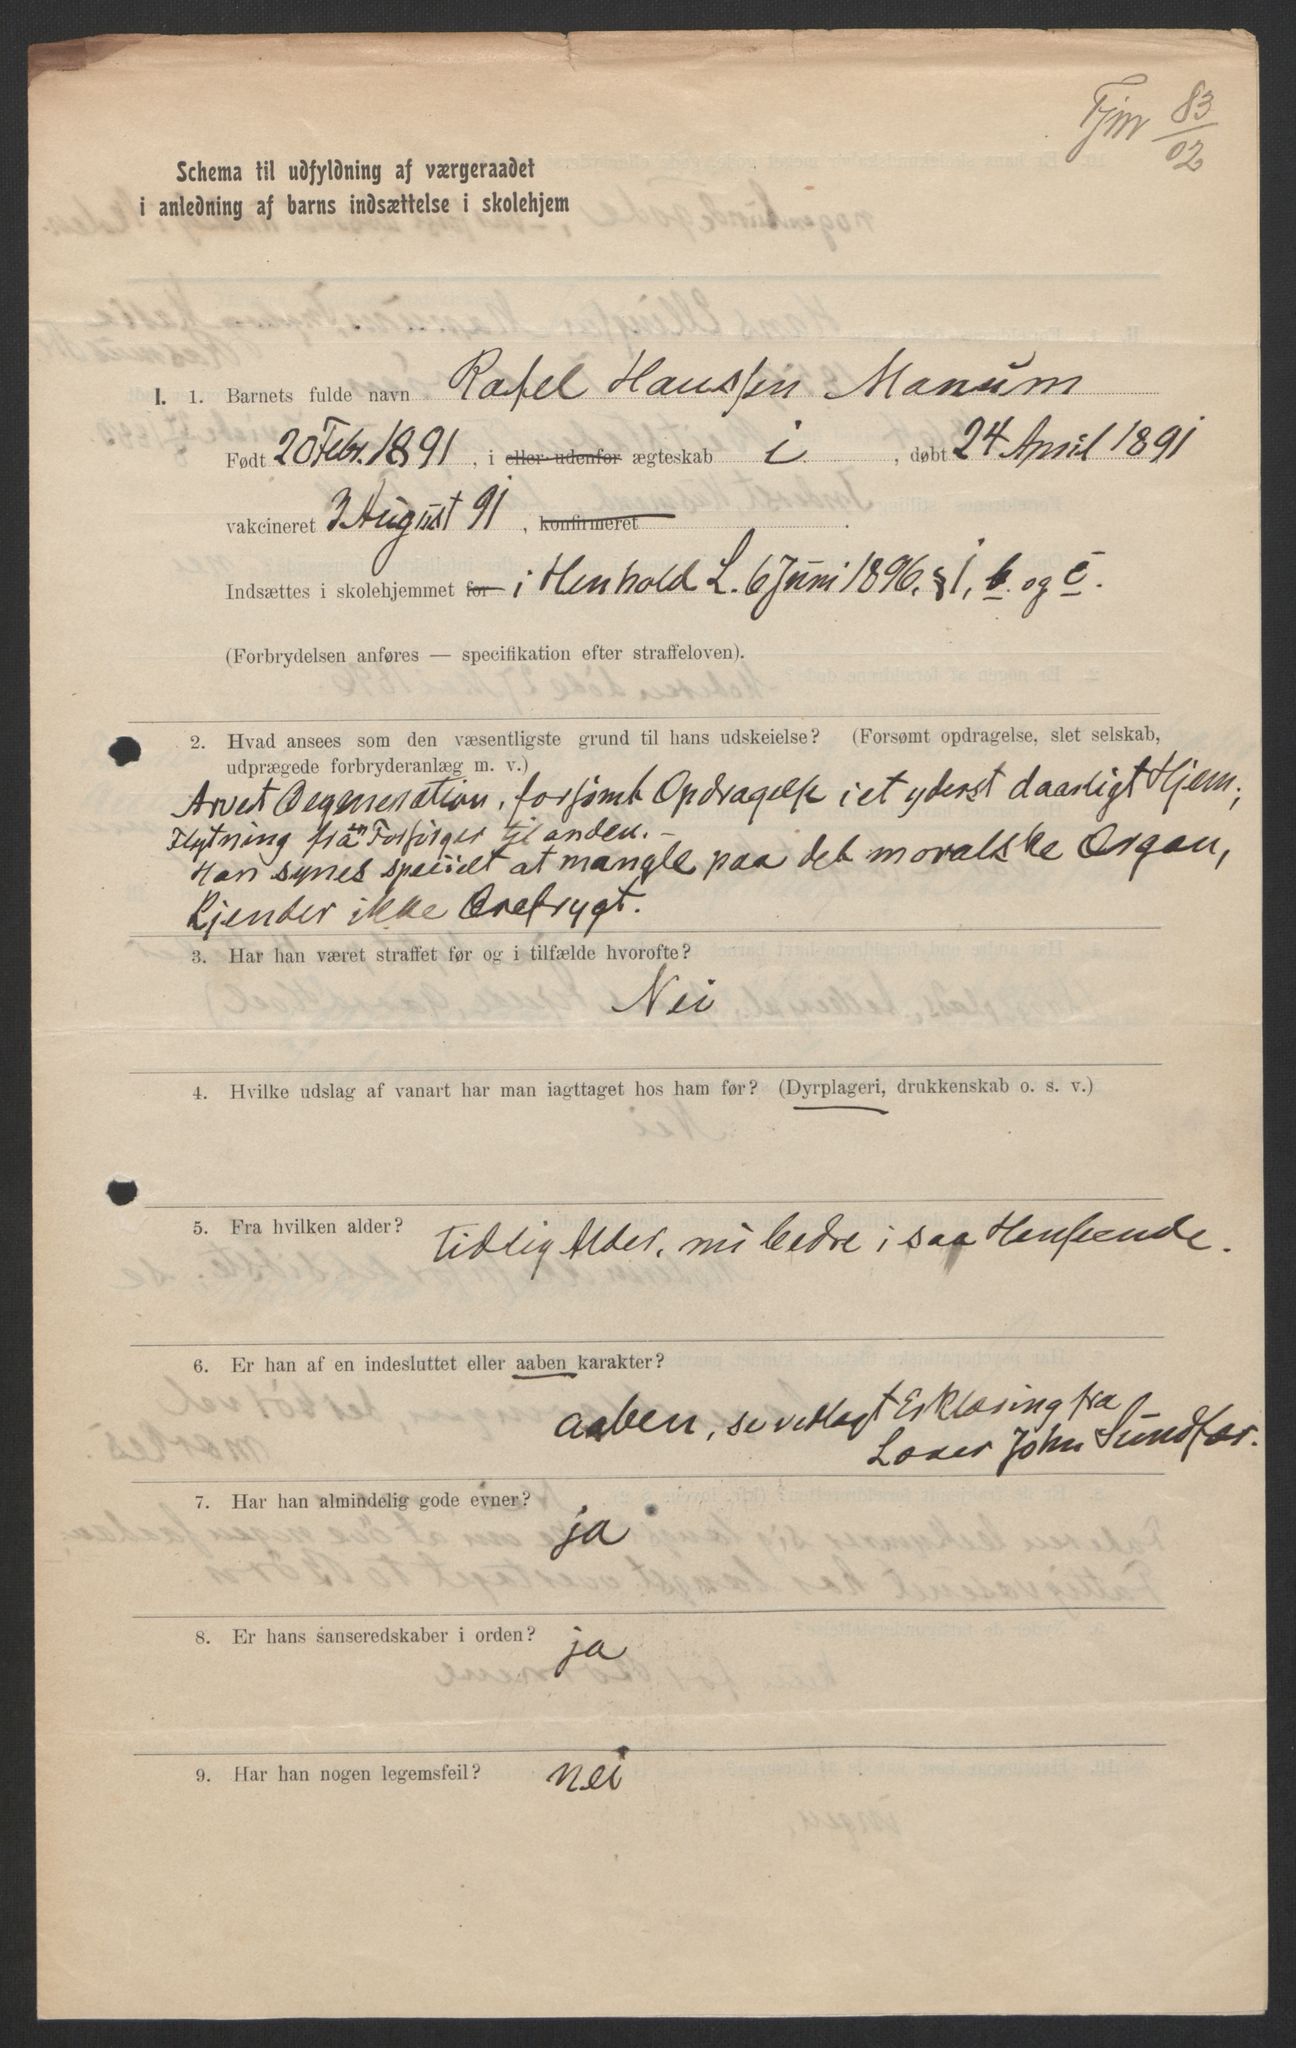 Fjm 83/02
Schema til udfyldning af værgeraadet
i anledning af barns indsættelse i skolehjem
I. 1. Barnets fulde navn Rafel Hanssen Manum
Født 20 Febr. 1891, i eller udenfor ægteskab i, døbt 24 April 1891
vakcineret 3 August 91, konfirmeret
Indsættes i skolehjemmet for i Henhold L. 6 Juni 1896, § 1, b. og c.
(Forbrydelsen anføres — specifikation efter straffeloven).
2. Hvad ansees som den væsentligste grund til hans udskeielse? (Forsømt opdragelse, slet selskab,
udprægede forbryderanlæg m. v.)
Arvet Degeneration, forsömt Opdragelse i et yderst daarligt Hjem;
Flytning fra en Forsörger til anden. –
Han synes specielt at mangle paa det moralske Organ,
kjender ikke Ærefrygt.
3. Har han været straffet før og i tilfælde hvorofte?
Nei
4. Hvilke udslag af vanart har man iagttaget hos ham før? (Dyrplageri, drukkenskab o. s. v.)
5. Fra hvilken alder? tidlig Alder, nu bedre i saa Henseende.
6. Er han af en indesluttet eller aaben karakter?
aaben, se vedlagt Erklæring fra
Lærer John Sundfær.
7. Har han almindelig gode evner?
ja
8. Er hans sanseredskaber i orden? ja
9. Har han nogen legemsfeil? nei